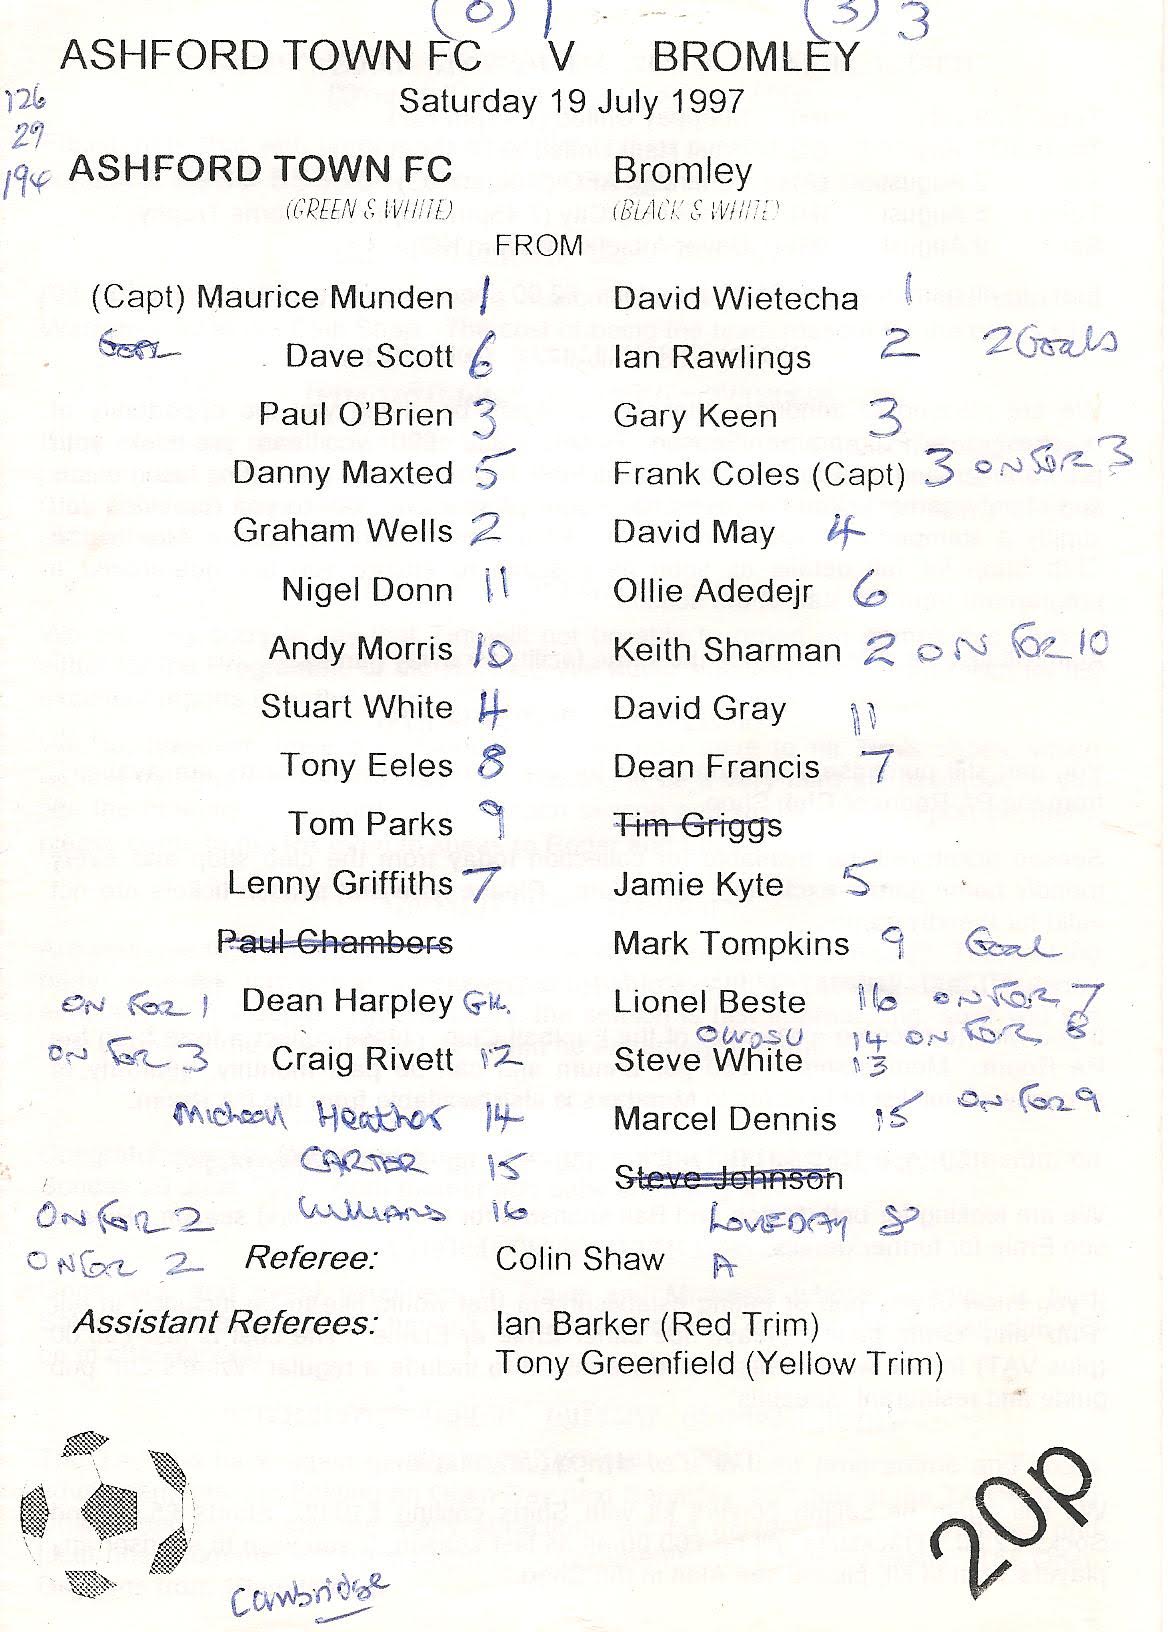 (0) 1 (3) 3
ASHFORD TOWN FC V BROMLEY
126 Saturday 19 July 1997
29
194 ASHFORD TOWN FC Bromley
(GREEN & WHITE) (BLACK & WHITE)
FROM
(Capt) Maurice Munden 1 David Wietecha 1
Goal Dave Scott 6 Ian Rawlings 2 2 Goals
Paul O'Brien 3 Gary Keen 3
Danny Maxted 5 Frank Coles (Capt) 3 ON FOR 3
Graham Wells 2 David May 4
Nigel Donn 11 Ollie Adedejr 6
Andy Morris 10 Keith Sharman 2 ON FOR 10
Stuart White 4 David Gray 11
Tony Eeles 8 Dean Francis 7
Tom Parks 9 Tim Griggs
Lenny Griffiths 7 Jamie Kyte 5
Paul Chambers Mark Tompkins 9 Goal
ON FOR 1 Dean Harpley GK. Lionel Beste 16 ON FOR 7
OWUSU 14 ON FOR 8
ON FOR 3 Craig Rivett 12 Steve White 13
Micheal Heather 14 Marcel Dennis 15 ON FOR 9
CARTER 15 Steve Johnson
ON FOR 2 Williams 16 LOVEDAY 8
ON FOR 2 Referee: Colin Shaw A
Assistant Referees: Ian Barker (Red Trim)
Tony Greenfield (Yellow Trim)
20p
Cambridge